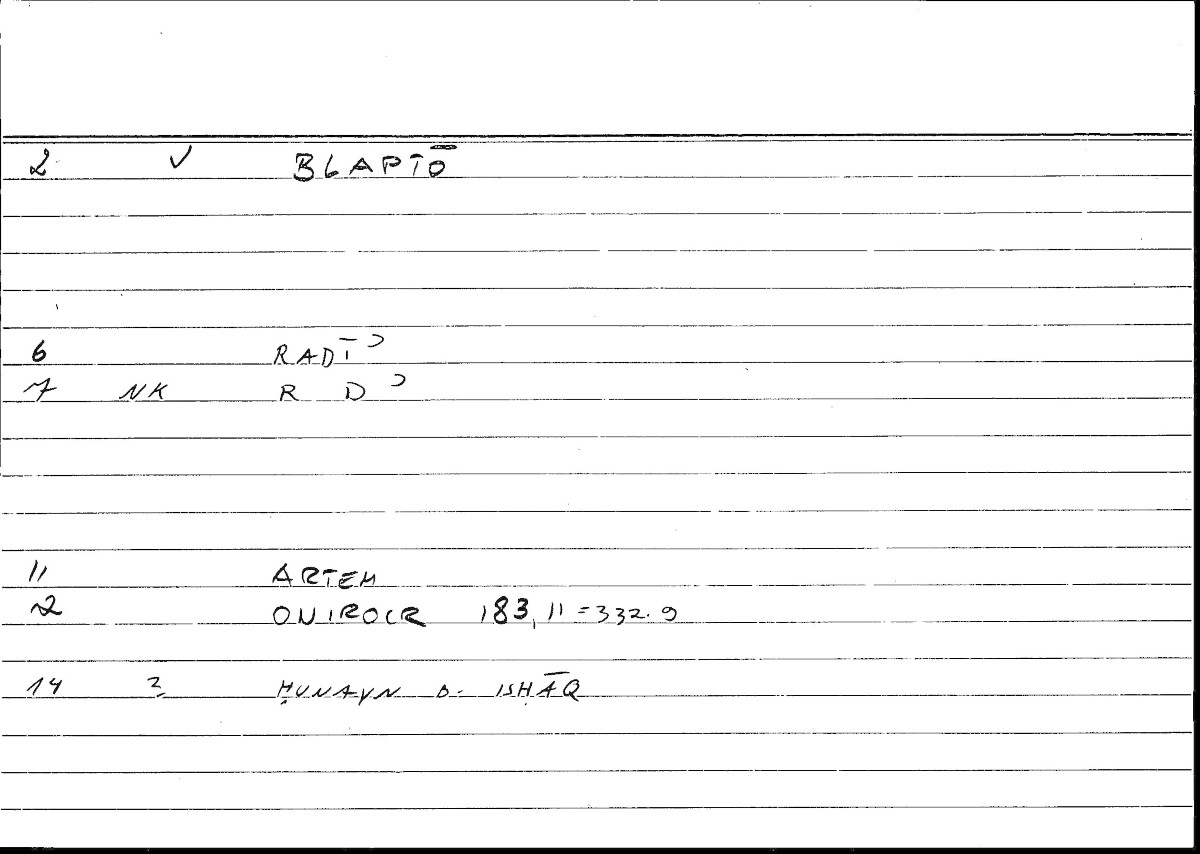 2 ✓ BLAPTŌ
6 RADĪʾ
7 NK R D ʾ
11 ARTEM
2 ONIROCR 183, 11 = 332.9
14 2 ḤUNAYN B. ISḤĀQ